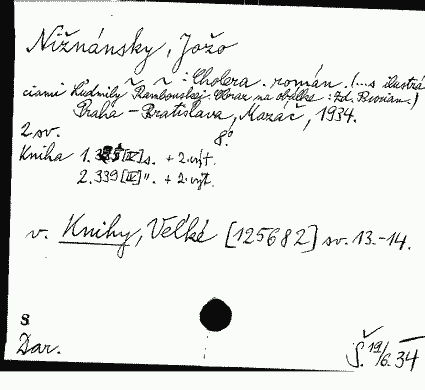 Nižnánsky, Jožo
~ ~ : Cholera. román. (...s ilustrá
ciami Ľudmily Rambouskej. Obraz na obálke : Zd. Burian.)
Praha - Bratislava, Mazáč, 1934.
2 sv. 8°.
Kniha 1. [IV] s. + 2 výt.
2. 339 [IV] ". + 2 výt.
v. Knihy, Veľké [125682] sv. 13.-14.
8
Dar.
Š. 19/6. 34